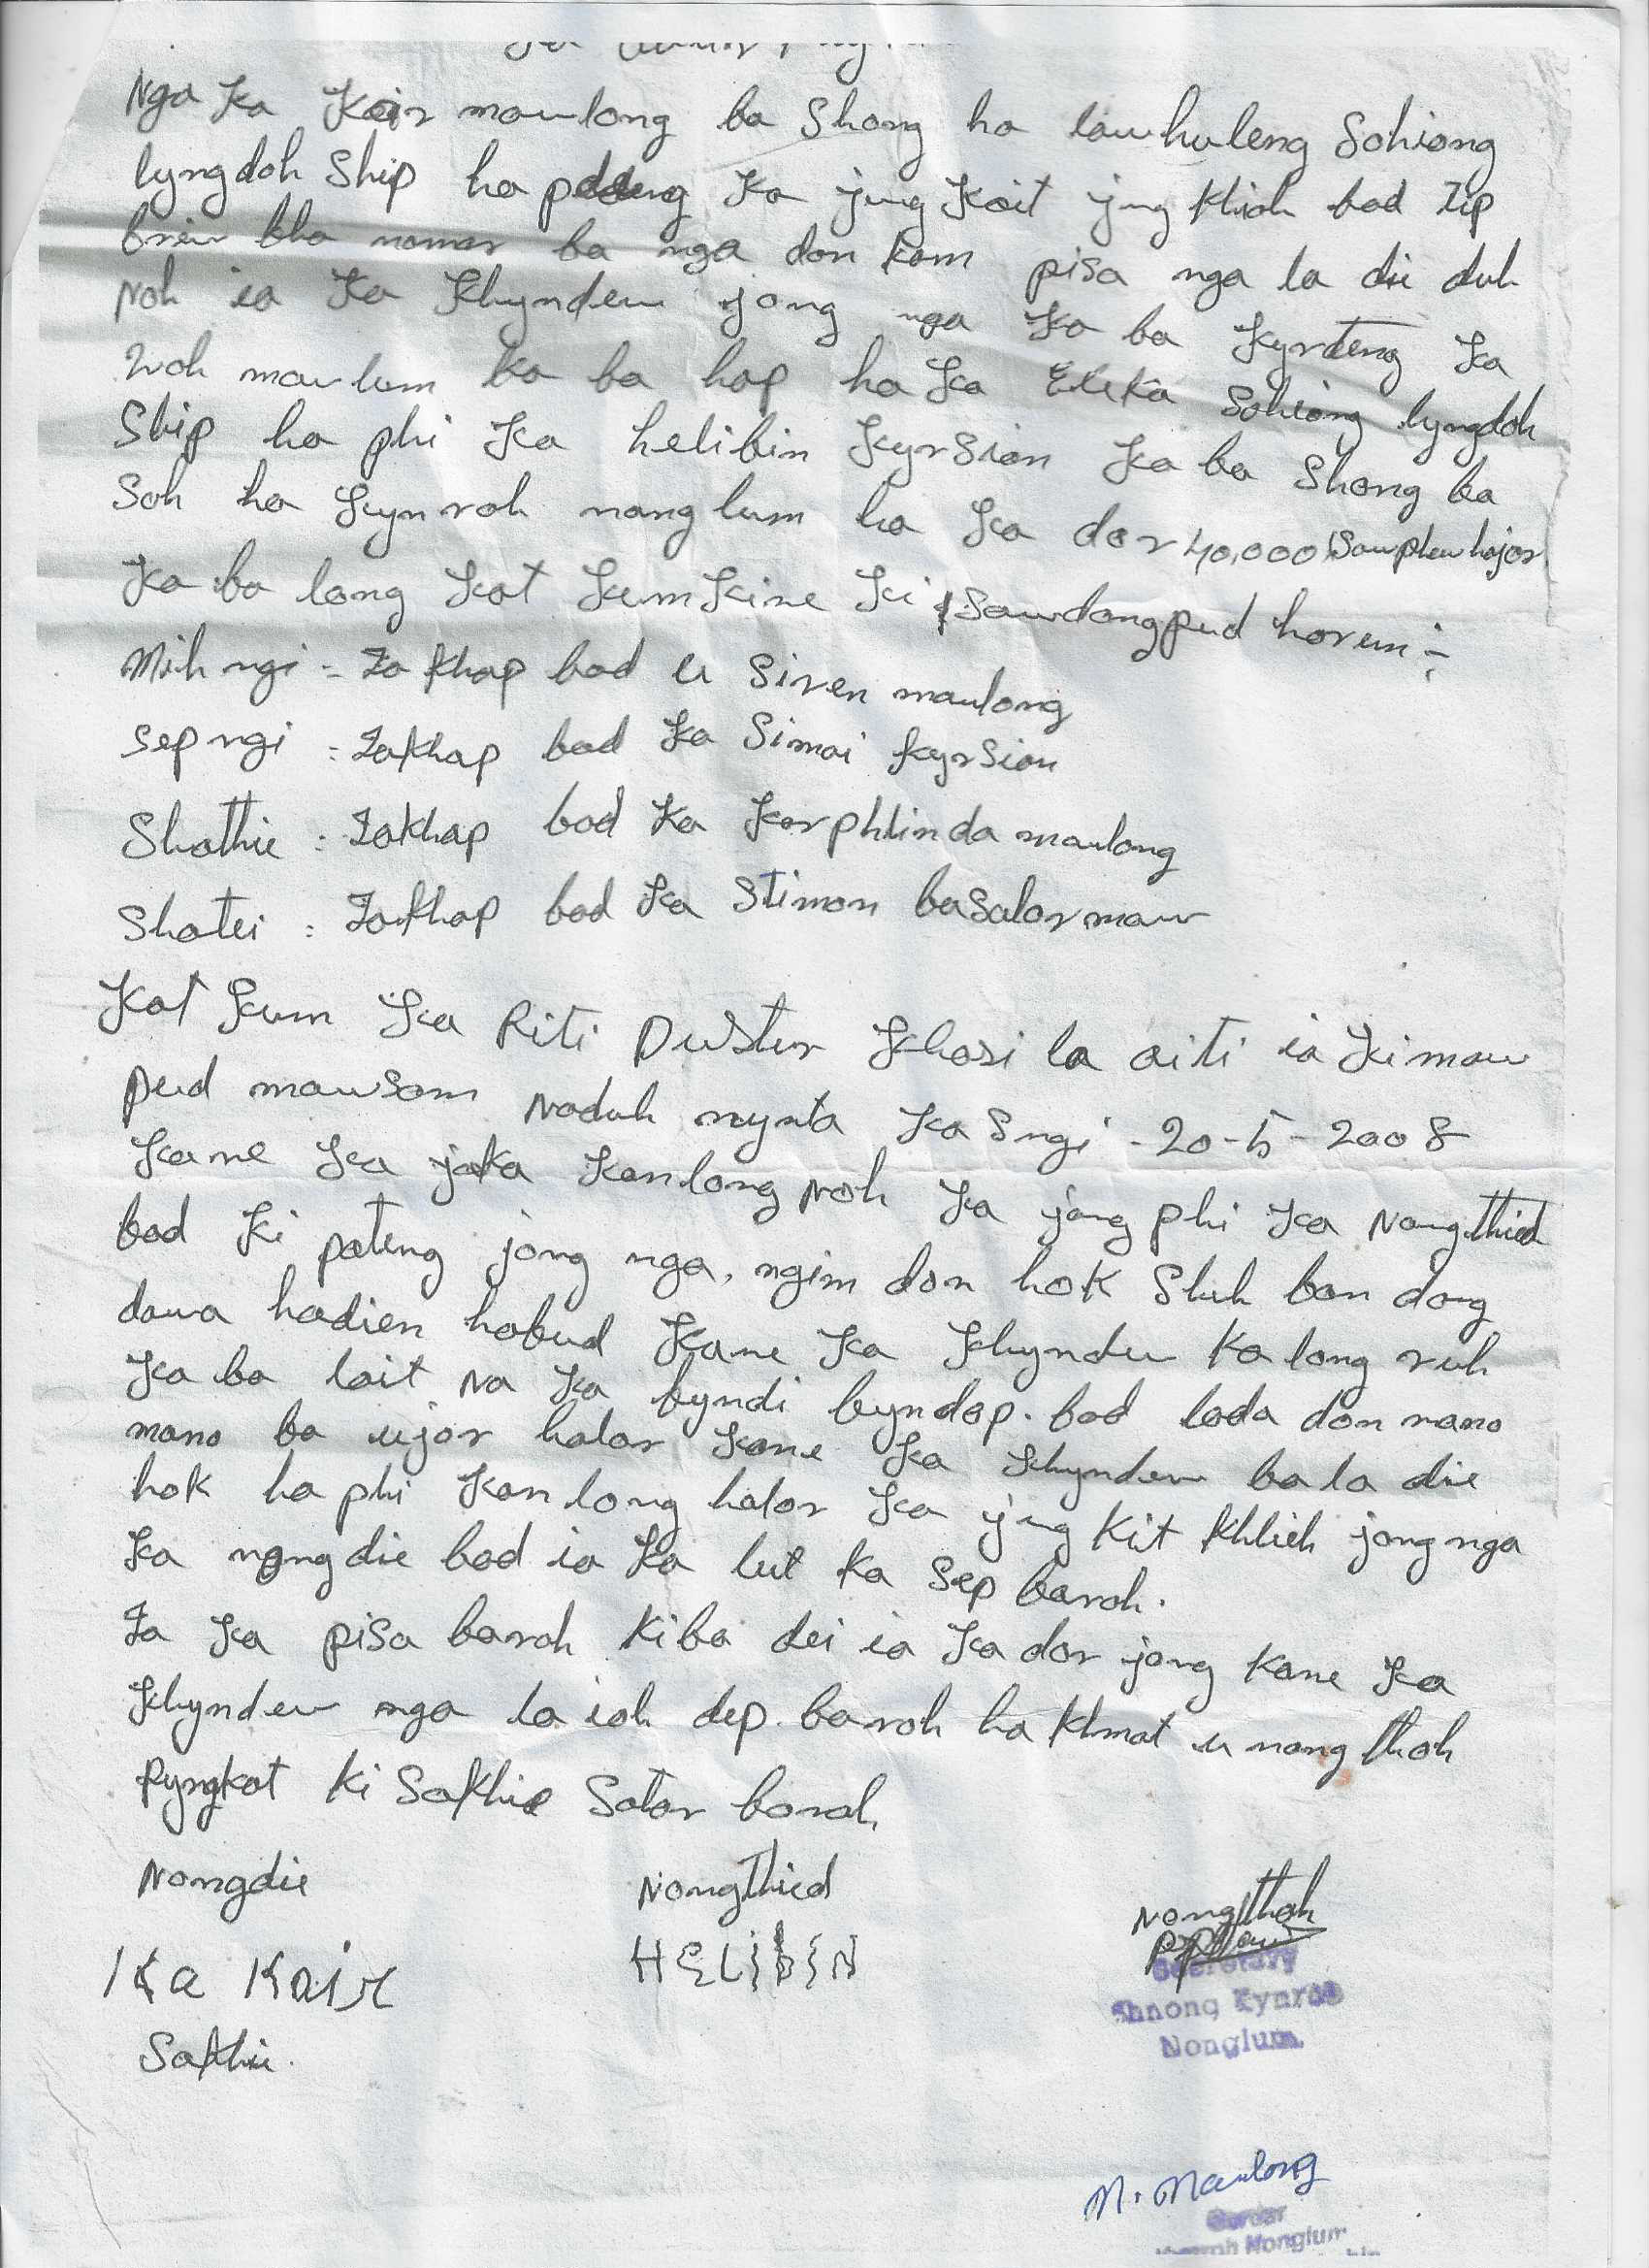 Nga Ka Kair mawlong ba Shong ha lawhuleng Sohiong
lyngdoh Ship ha pdeng Ka jing Koit jing Khiah bad Tip
briew bha namar ba nga don kam pisa nga la die duh
Noh ia Ka Khyndew jong nga Ka ba Kyrteng Ka
Woh mawlum Ka ba hap ha Ka Eleka Sohiong lyngdoh
Ship ha phi Ka helibin Kyrsian Ka ba Shong ba
Soh ha Kynroh nonglum ha Ka dor 40,000 Sawphew hajar
Ka ba long Kat Kum Kine Ki Sawdong pud harum :-
Mih ngi = Ia Khap bad U Siren mawlong
Sep ngi : Iakhap bad Ka Simai Kyrsian
Shathie : Iakhap bad Ka Korphlinda mawlong
Shatei : Iakhap bad Ka Stimon basalarmaw
Kat Kum Ka Riti Dustur Khasi la aiti ia Ki maw
pud mawsam Naduh mynta Ka Sngi - 20-5-2008
Kane Ka jaka Kanlong Noh Ka jong phi Ka Nongthied
bad Ki pateng jong nga, ngim don hok Shuh ban dang
dawa hadien habud Kane Ka Khyndew Ka long ruh
Ka ba lait Na Ka byndi byndap. bad lada don mano
mano ba ujor halor Kane Ka Khyndew ba la die
hok ha phi Kan long halor Ka jing Kit Khlieh jong nga
Ka nongdie bad ia Ka lut Ka Sep baroh.
Ia Ka pisa baroh Kiba dei ia Ka dor jong Kane Ka
Khyndew nga la ioh dep baroh ha Khmat u nong thoh
Ryngkat Ki Sakhie Satar baroh
Nongdie Nongthied Nongthoh
Ka Kair HELIBIN
Secretary
Shnong Kynroh
Nonglum.
Sakhie.
M. Mawlong
Nonglum